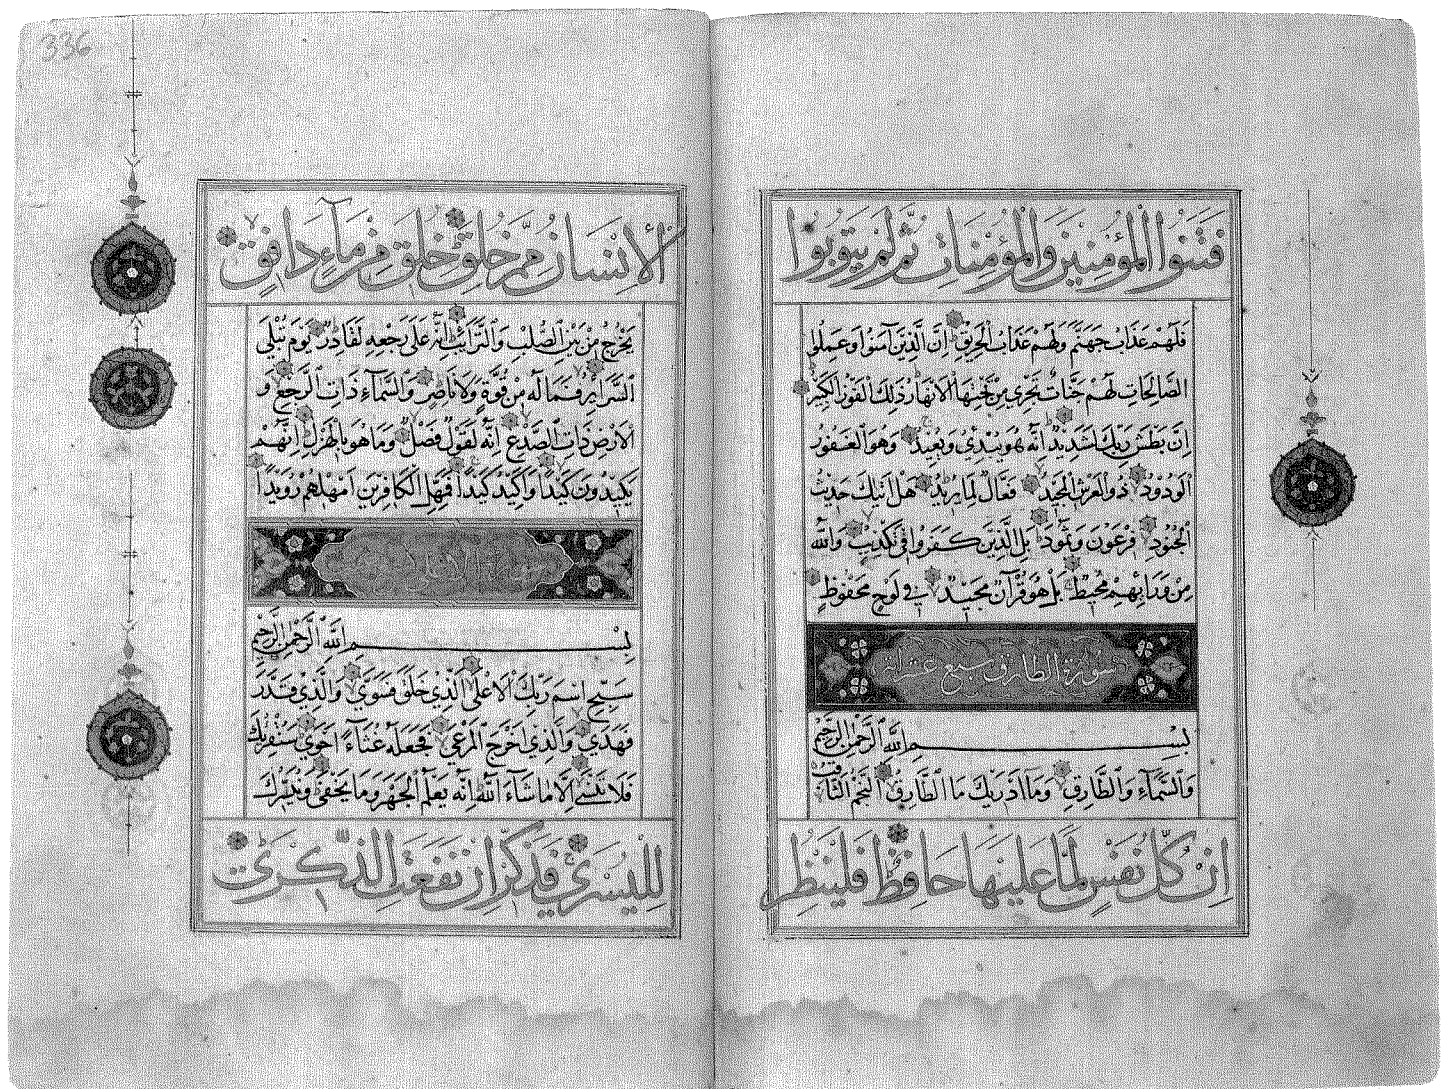 فتنوا المؤمنين والمؤمنات ثم لم يتوبوا
فلهم عذاب جهنم ولهم عذاب الحريق ان الذين آمنوا وعملوا
الصالحات لهم جنات تجري من تحتها الانهار ذلك الفوز الكبير
ان بطش ربك لشديد انه هو يبدئ ويعيد وهو الغفور
الودود ذو العرش المجيد فعال لما يريد هل اتيك حديث
الجنود فرعون وثمود بل الذين كفروا في تكذيب والله
من ورائهم محيط بل هو قرآن مجيد في لوح محفوظ
سورة الطارق سبع عشر آية
بسم الله الرحمن الرحيم
والسماء والطارق وما ادريك ما الطارق النجم الثاقب
ان كل نفس لما عليها حافظ فلينظر
336
الانسان مم خلق خلق من ماء دافق
يخرج من بين الصلب والترائب انه على رجعه لقادر يوم تبلى
السرائر فما له من قوة ولا ناصر والسماء ذات الرجع و
الارض ذات الصدع انه لقول فصل وما هو بالهزل انهم
يكيدون كيدا واكيد كيدا فمهل الكافرين امهلهم رويدا
بسم الله الرحمن الرحيم
سبح اسم ربك الاعلى الذي خلق فسوى والذي قدر
فهدى والذي اخرج المرعى فجعله غثاء احوى سنقرئك
فلا تنسى الا ما شاء الله انه يعلم الجهر وما يخفى ونيسرك
لليسرى فذكر ان نفعت الذكرى